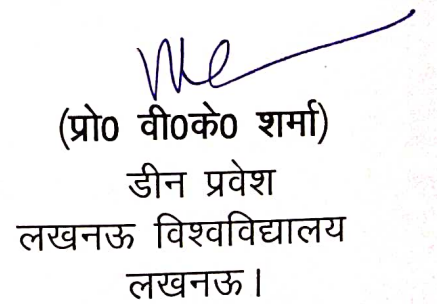 (प्रो0 वी0के0 शर्मा)
डीन प्रवेश
लखनऊ विश्वविद्यालय
लखनऊ।